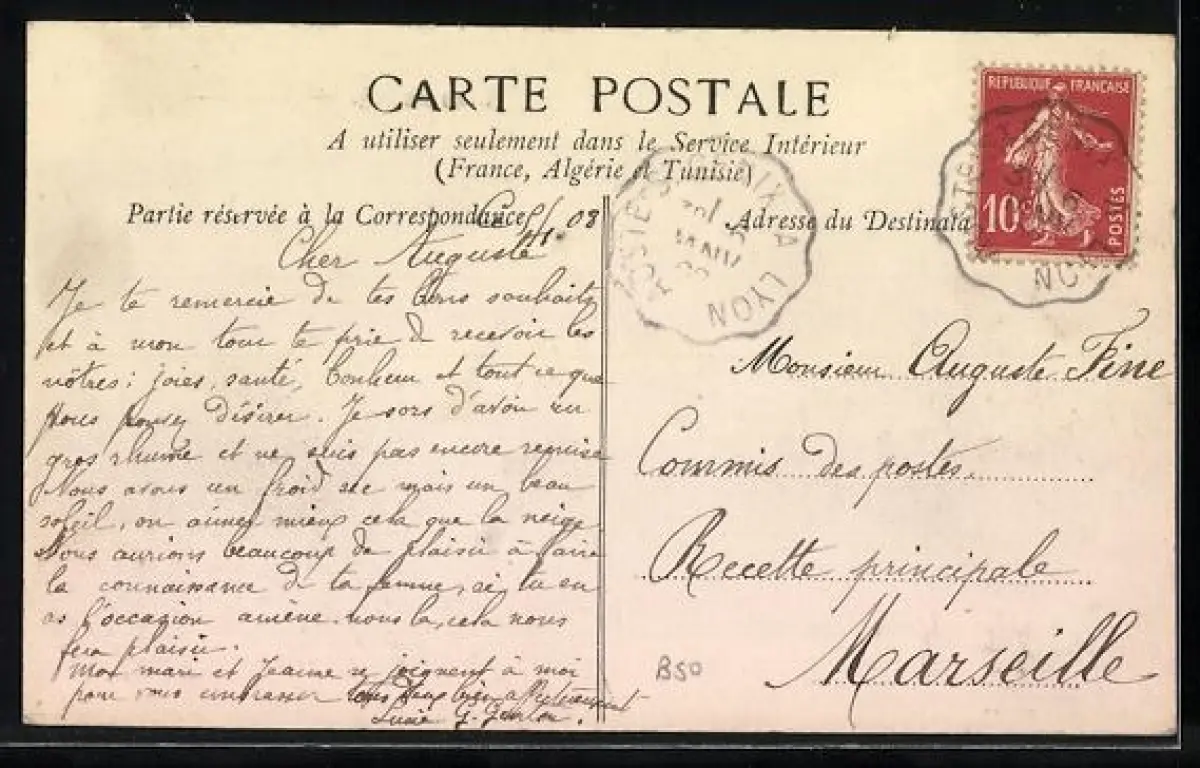 CARTE POSTALE
A utiliser seulement dans le Service Intérieur
(France, Algérie et Tunisie)
Partie réservée à la Correspondance
Adresse du Destinata
REPUBLIQUE FRANÇAISE
10c
POSTES
AIX A LYON
LYON
Ce 5/1.08
Cher Auguste
Je te remercie de tes bons souhaits
et à mon tour te prie de recevoir les
nôtres: joies, santé, bonheur et tout ce que
vous pouvez désirer. Je sors d'avoir un
gros rhume et ne suis pas encore remise
Nous avons un froid sec mais un beau
soleil, on aime mieux cela que la neige
Nous aurions beaucoup de plaisir à faire
la connaissance de ta femme, si tu en
as l'occasion amène-nous la, cela nous
fera plaisir.
Mon mari et Jeanne se joignent à moi
pour vous embrasser tous deux bien affectueusement
Lucie
Monsieur Auguste Fine
Commis des postes.
Recette principale
Marseille
B50